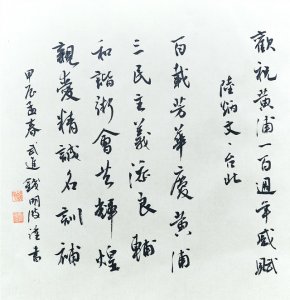 歡祝黃浦一百週年感賦
陸炳文·台北
百載芳華慶黃浦
三民主義添良輔
和諧術會共輝煌
親愛精誠名訓補
甲辰孟春武進錢明